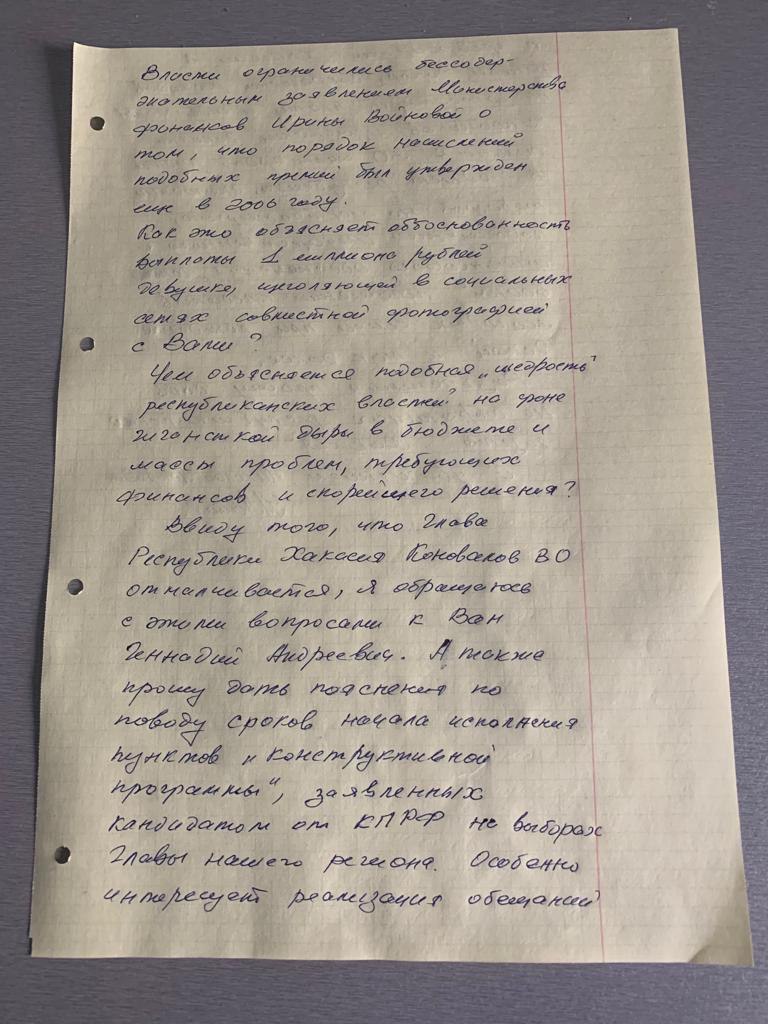 Власти ограничились бессодер-
жательным заявлением Министерства
финансов Ирины Войновой о
том, что порядок начислений
подобных премий был утвержден
еще в 2006 году.
Как это объясняет обоснованность
выплаты 1 миллиона рублей
девушке, щеголяющей в социальных
сетях совместной фотографией
с Вами?
Чем объясняется подобная „щедрость"
республиканских властей на фоне
гигантской дыры в бюджете и
массы проблем, требующих
финансов и скорейшего решения?
Ввиду того, что Глава
Республики Хакасия Коновалов ВО
отмалчивается, я обращаюсь
с этими вопросами к Вам
Геннадий Андреевич. А также
прошу дать пояснения по
поводу сроков начала исполнения
пунктов „конструктивной
программы", заявленных
кандидатом от КПРФ на выборах
Главы нашего региона. Особенно
интересует реализация обещаний